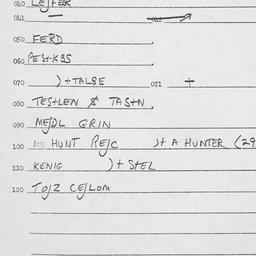 040 LE/FER
041
050 FERD
060 PEStKBS
070 )+TALBE 071 +
080 TEStLEN & TAStN,
090 ME/DL GRIN
100 HUNT RE/C )+ A HUNTER (29
110 KENIG )+ StEL
120 TO/Z CE/LOM